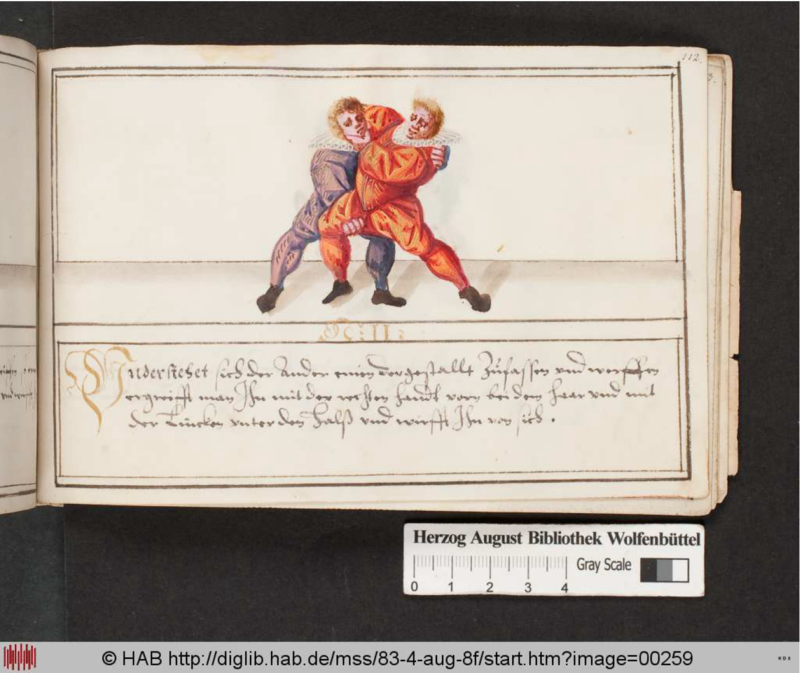 112.
CII
Understehet sich der Ander einen dergestallt Zufassen und werffen
ergreifft man Ihn mit der rechten handt vorn bei dem haar und mit
der Lincken unter den halß und wirfft Ihn von sich.
Herzog August Bibliothek Wolfenbüttel
Gray Scale
0 1 2 3 4
© HAB http://diglib.hab.de/mss/83-4-aug-8f/start.htm?image=00259